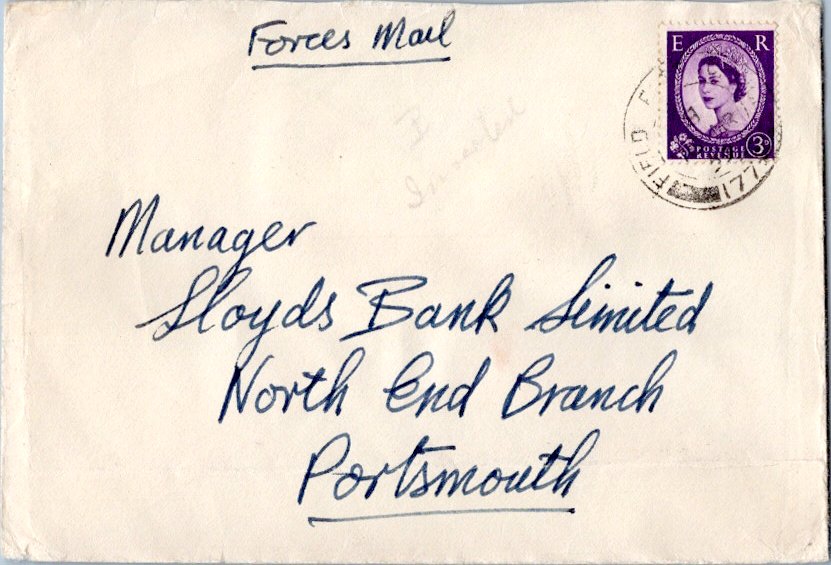 Forces Mail
E R
POSTAGE
REVENUE
3D
FIELD
177
Manager
Lloyds Bank Limited
North End Branch
Portsmouth